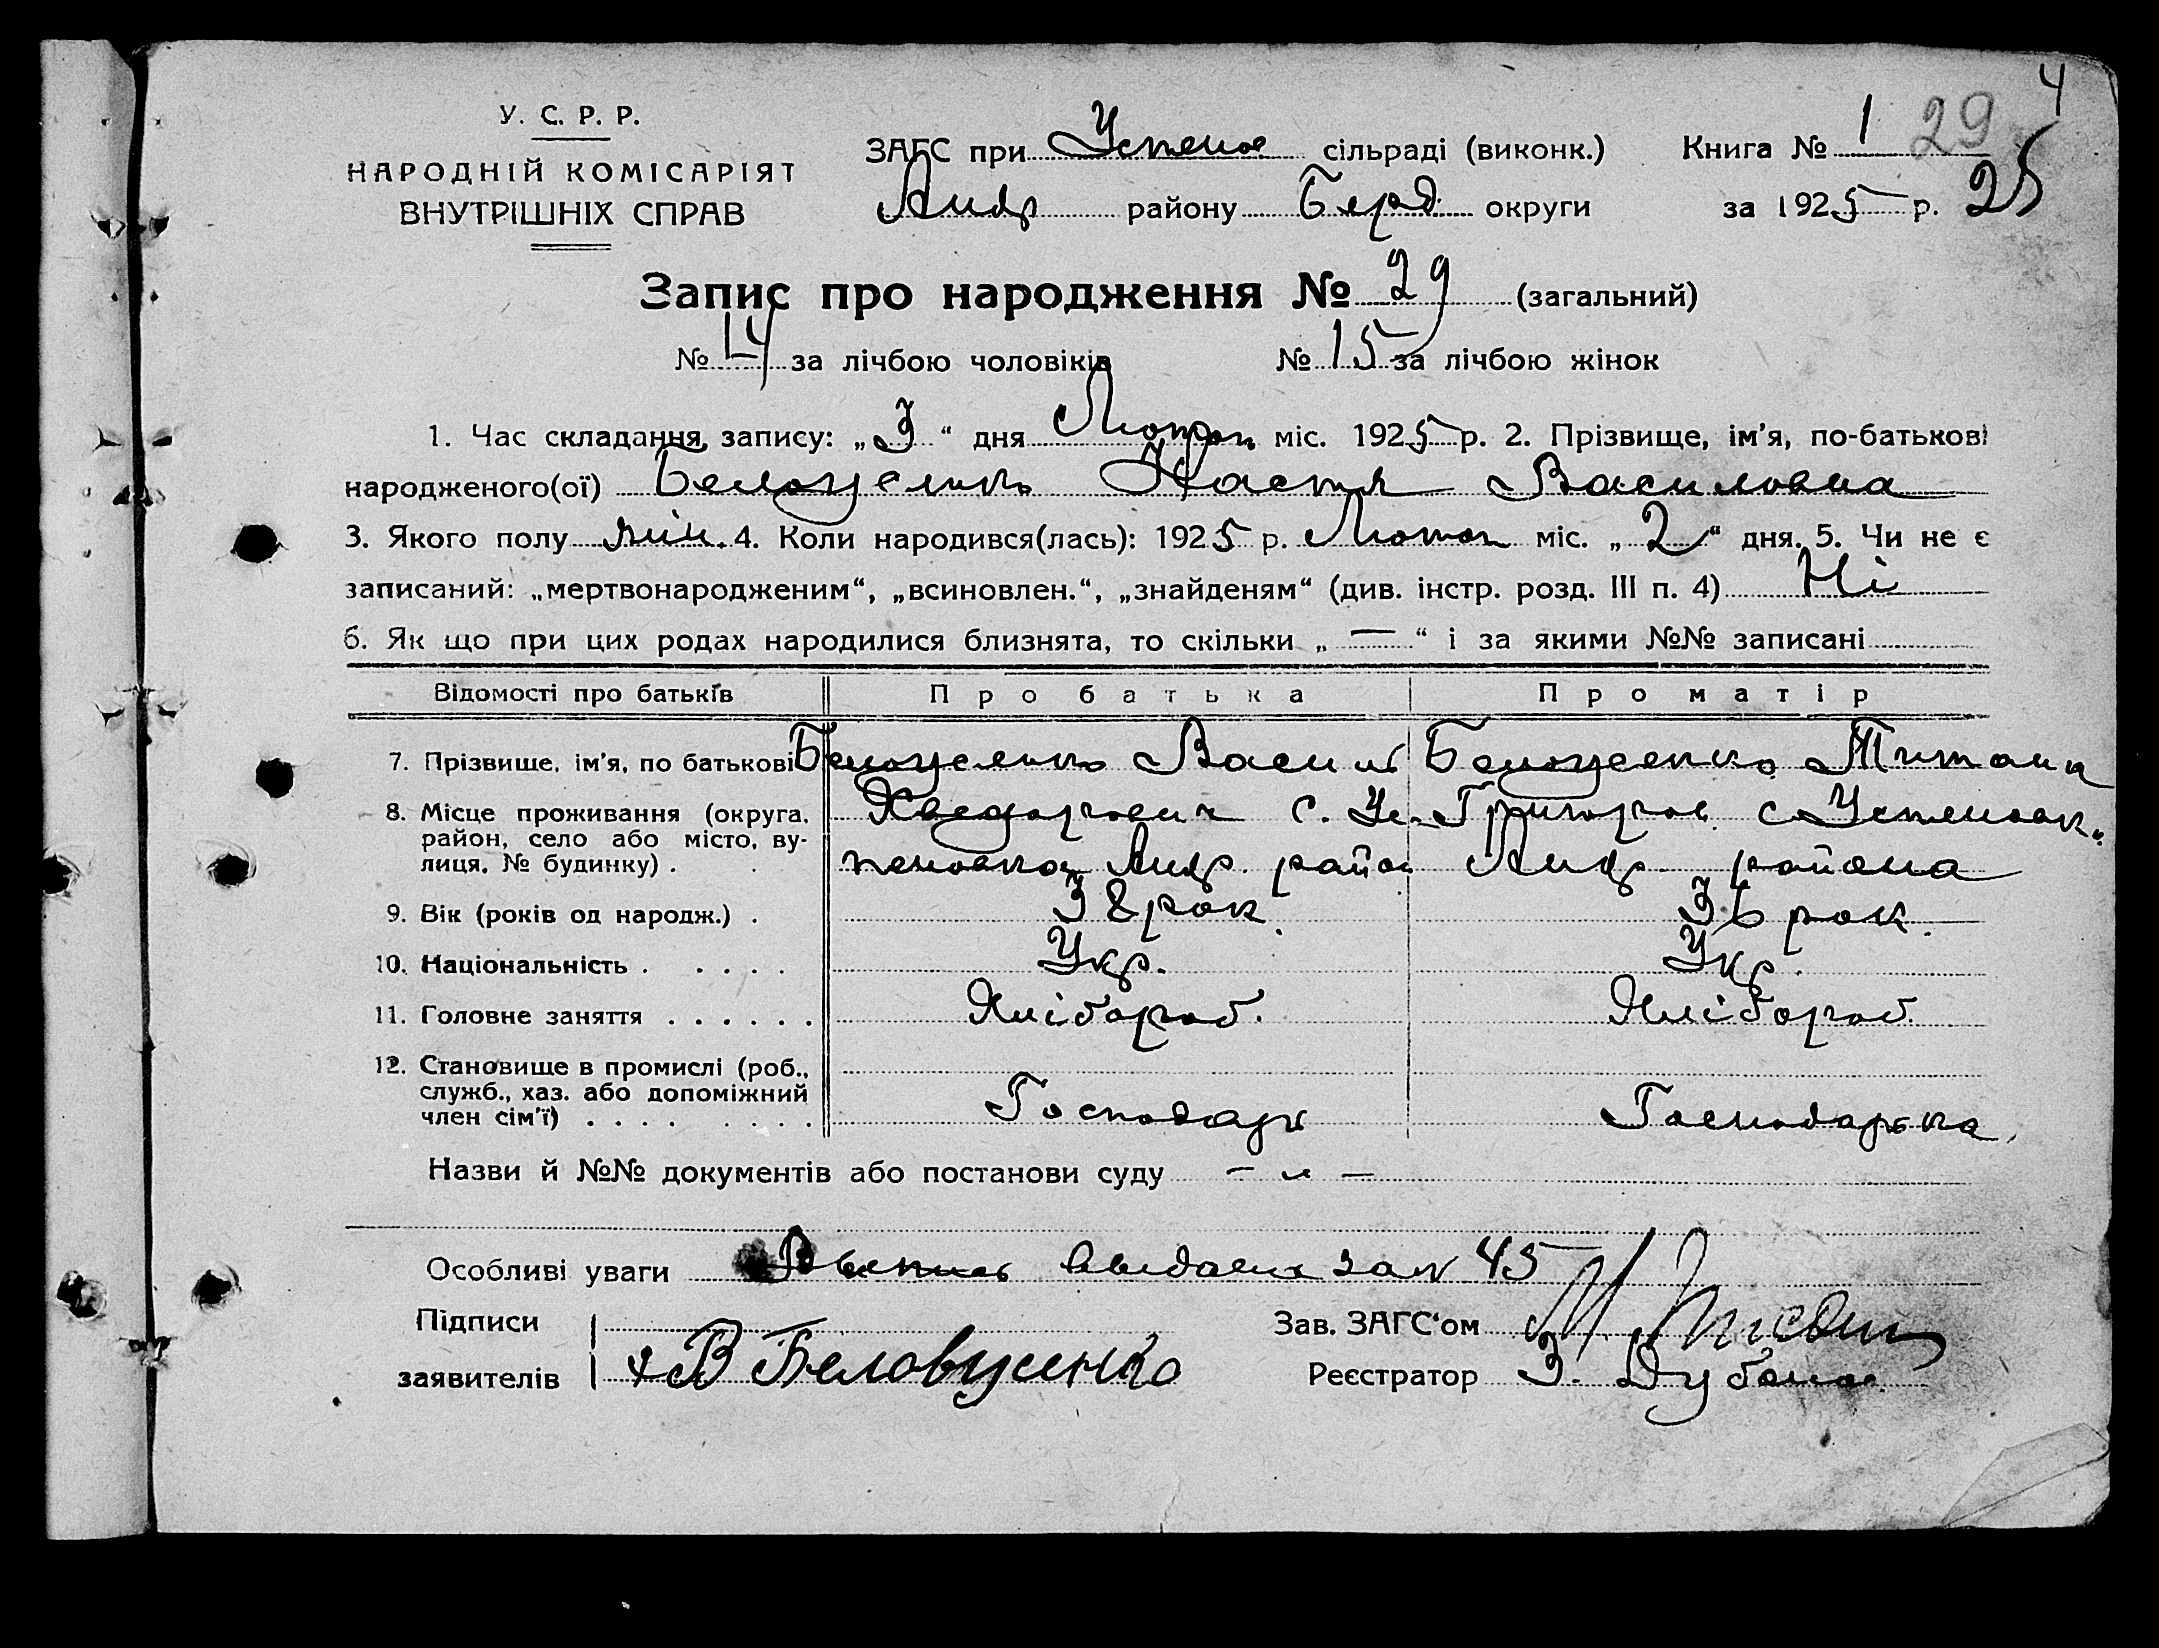 4
У. С. Р. Р.
НАРОДНІЙ КОМІСАРІЯТ
ВНУТРІШНІХ СПРАВ
ЗАГС при Успенов сільраді (виконк.) Книга № 1 29
Андр району Берд. округи за 1925 р. 25
Запис про народження № 29 (загальний)
№ 14 за лічбою чоловіків № 15 за лічбою жінок
1. Час складання запису: „3“ дня Лютого міс. 1925 р. 2. Прізвище, ім'я, по-батькові
народженого(ої) Белоусенко Настя Василовна
3. Якого полу жін. 4. Коли народився(лась): 1925 р. Лютого міс. „2“ дня. 5. Чи не є
записаний: „мертвонародженим“, „всиновлен.“, „знайденям“ (див. інстр. розд. III п. 4) Ні
6. Як що при цих родах народилися близнята, то скільки „—“ і за якими №№ записані
Відомості про батьків Про батька Про матір
7. Прізвище, ім'я, по батькові Белоусенко Василь Белоусенко Титана
8. Місце проживання (округа, Хведорович с. Ус- Григоров. с Успеновк.
район, село або місто, ву-
лиця, № будинку) . пеновка Андр. район Андр. района
9. Вік (років од народж.) . 38 рок. 36 рок.
10. Національність . . . . . Укр. Укр.
11. Головне заняття . . . . . . Хлібороб. Хлібороб.
12. Становище в промислі (роб.,
служб., хаз. або допоміжний
член сім'ї) . . . . . . . . Господарь Господарька
Назви й №№ документів або постанови суду — „ —
Особливі уваги Выпись выдана за № 45
Підписи Зав. ЗАГС'ом М.
заявителів В Беловусенко Реєстратор З. Дубина